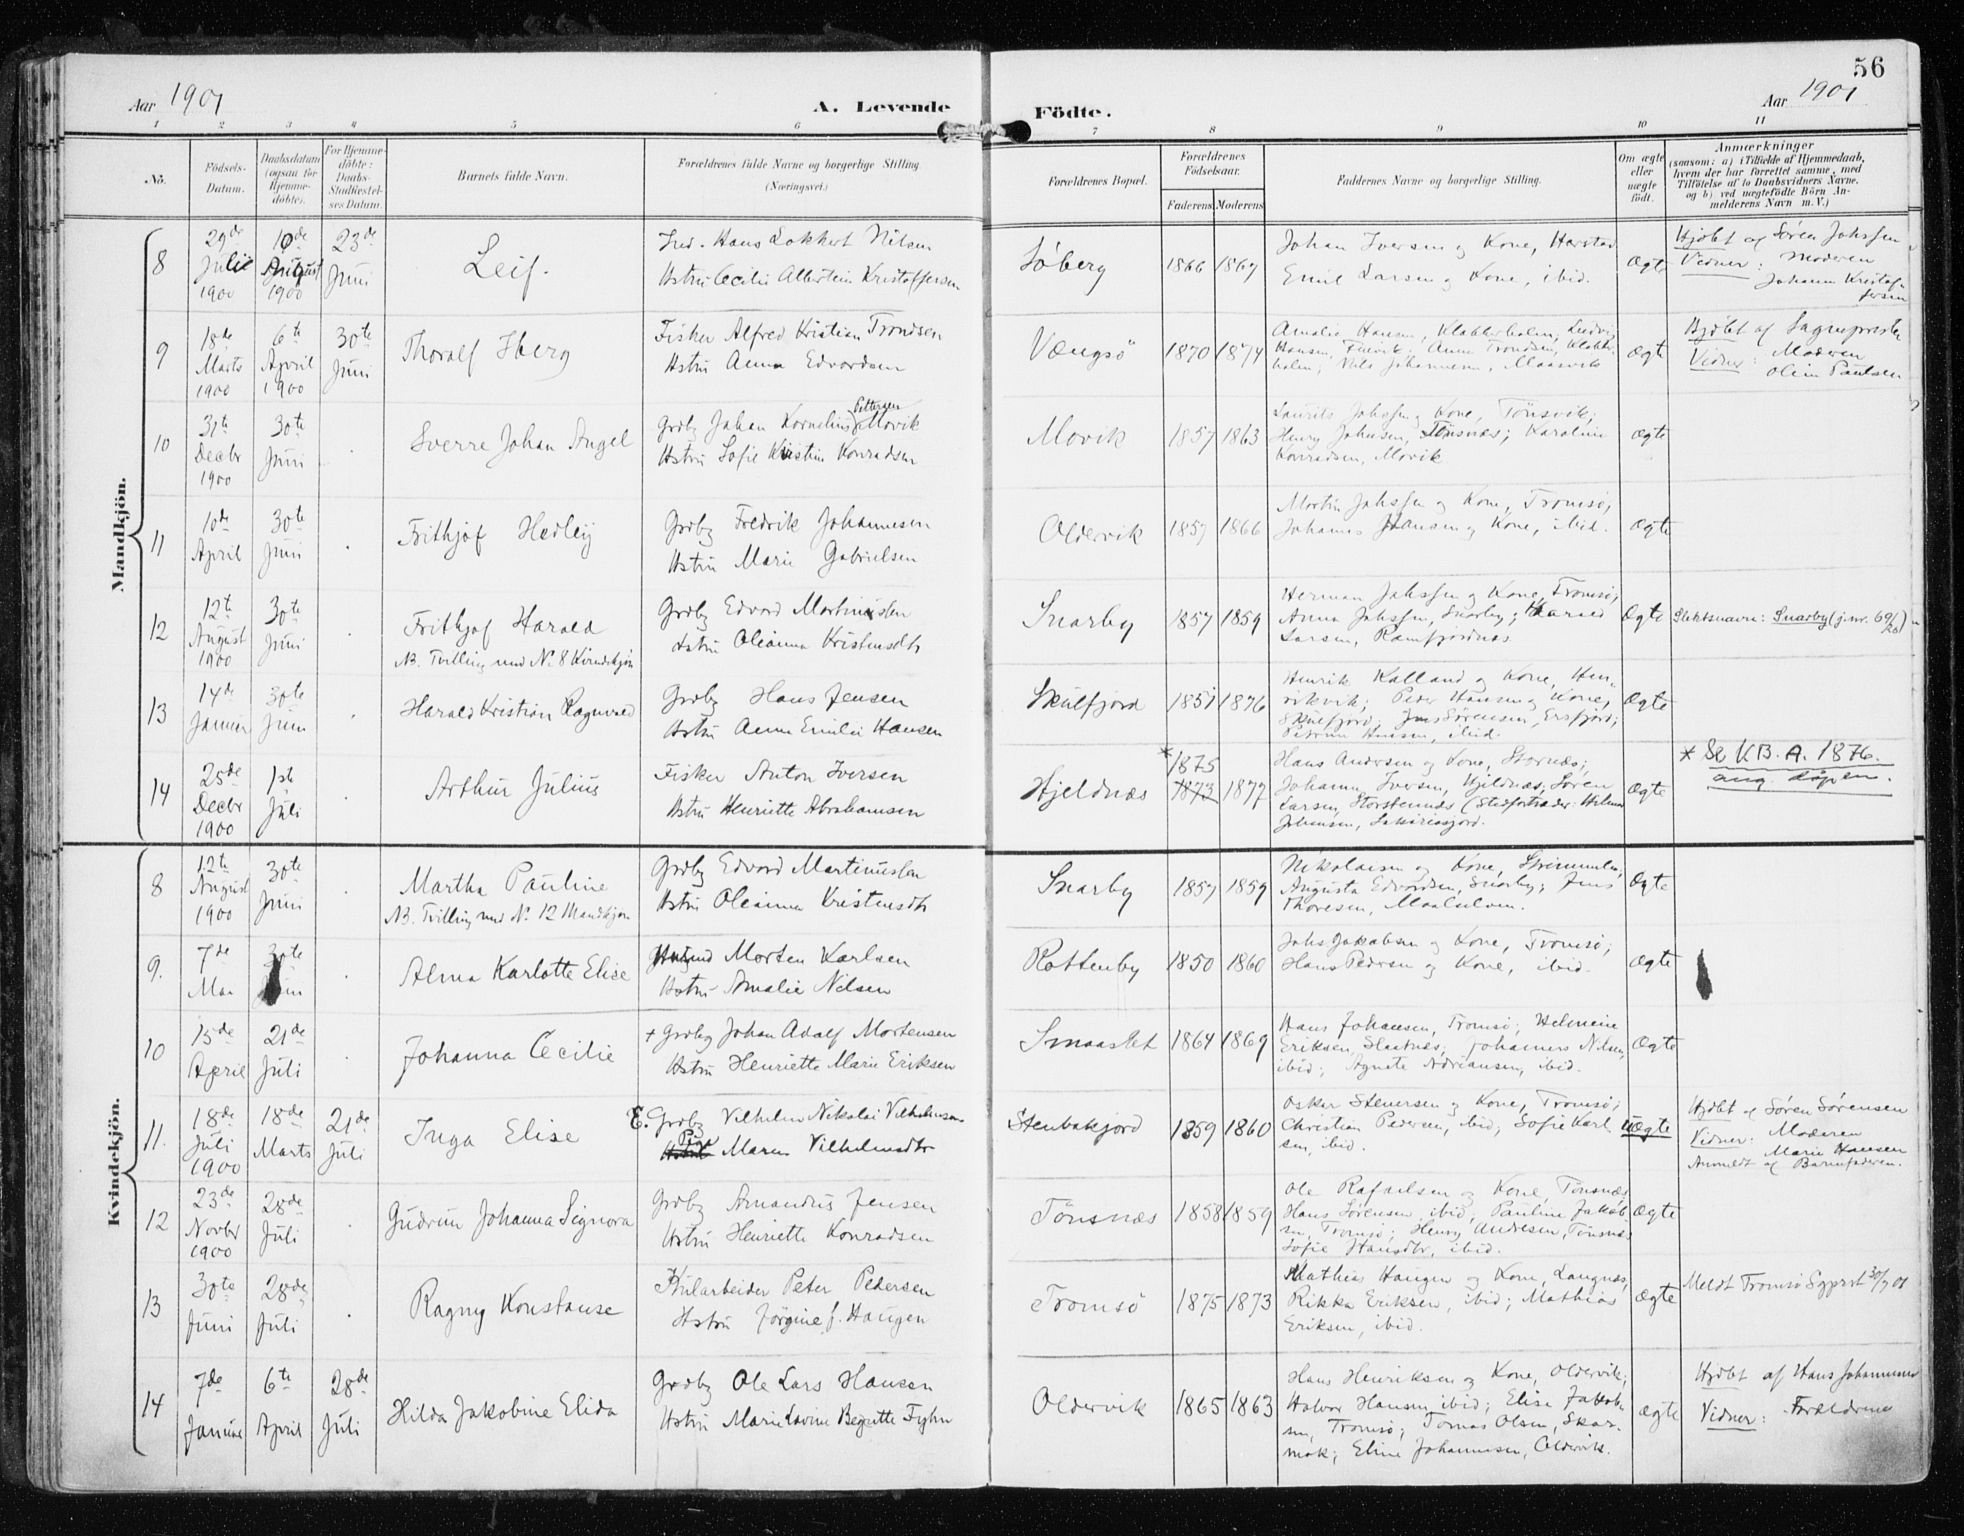 56
Aar 1901
A. Levende
Födte.
Aar 1901
1 2 3 4 5 6 7 8 9 10 11
No.
Födsels-
Datum.
Daabsdatum
(ogsaa for
Hjemme-
döbte).
For Hjemme-
döbte:
Daabs-
Stadfæstel-
ses Datum.
Barnets fulde Navn.
Forældrenes fulde Navne og borgerlige Stilling.
(Næringsvei.)
Forældrenes Bopæl.
Forældrenes
Födselsaar.
Faderens Moderens
Faddernes Navne og borgerlige Stilling.
Om ægte
eller
uægte
födt.
Anmærkninger
(saasom: a) i Tilfælde af Hjemmedaab,
hvem der har forrettet samme, med
Tilföielse af to Daabsvidners Navne,
og b) ved uægtefödte Börn An-
melderens Navn m. V.)
Mandkjön.
8
29de
Juli
1900
10de
August
1900
23de
Juni
Leif.
Hans Lokkert Nilsen
Hstru Cecilie Albertine Kristoffersen
Söberg
1866 1867
Johan Iversen og Kone, Harstad
Emil Larsen og Kone, ibid.
Ægte
Hjdbt af Sören Johssen
Vidner: Moderen
Johanna Kristof-
fersen
9
18de
Marts
1900
6te
April
1900
30te
Juni
Thoralf Hberg
Fisker Alfred Kristian Trondsen
Hstru Anna Edvardsen
Vængsö
1870 1874
Amalie Hansen, Klabberholm; Ludvig
Hansen, Finvik; Anne Trondsen, Klabber-
holm; Nils Johannesen, Maasvik
Ægte
Hjdbt af Sognepresten
Vidner: Moderen
Oline Paulsen
10
31te
Decbr
1900
30te
Juni
Sverre Johan Angel
Grdbr Johan Kornelius Pettersen Movik
Hstru Sofie Kristine Konradsen
Movik
1857 1863
Laurits Johssen og Kone, Tönsvik;
Henry Johnsen, Tönsnæs; Karoline
Konradsen, Movik
Ægte
11
10de
April
30te
Juni
Frithjof Hedley
Grdbr Fredrik Johannesen
Hstru Marie Gabrielsen
Oldervik
1857 1866
Mortin Johssen og Kone, Tromsö;
Johannes Hansen og Kone, ibid.
Ægte
12
12te
August
1900
30te
Juni
Frithjof Harald
NB. Tvilling med No 8 Kvindekjön
Grdbr Edvard Martinussen
Hstru Oleanna Kristensdtr
Snarby
1857 1859
Herman Johssen og Kone, Tromsö;
Anna Johssen, Snarby; Harald
Larsen, Ramfjordnæs
Ægte
Slektsnavn: Snarby (j.nr. 69/20)
13
14de
Januar
30te
Juni
Harald Kristian Ragnvald
Grdbr Hans Jensen
Hstru Anne Emilie Hansen
Skulfjord
1851 1876
Henrik Kalland og Kone, Hen-
rikvik; Peder Hansen og Kone,
Skulfjord; Jens Sörensen, Ersfjord;
Petrine Hansen, ibid.
Ægte
14
25de
Decbr
1900
1ste
Juli
Arthur Julius
Fisker Anton Iversen
Hstru Henriette Abrahamsen
Hjeldnæs
* 1875
1873 1877
Hans Andersen og Kone, Stornæs;
Johanna Iversen, Hjeldnæs; Sören
Larsen, Storstennes (Stedfortræder: Hilmar
Johansen, Sakariasjord.
Ægte
* Se KB. A. 1876.
ang. dåpen.
Kvindekjön.
8
12te
August
1900
30te
Juni
Martha Pauline
NB. Tvilling med No 12 Mandkjön
Grdbr Edvard Martinussen
Hstru Oleanna Kristensdtr
Snarby
1857 1859
Nikolaisen og Kone,
Augusta Edvardsen, Snarby; Jens
Thoresen, Maalselven.
Ægte
9.
7de
Mai
30te
Juni
Alma Karlotte Elise
Morten Karlsen
Hstru Amalie Nilsen
Rottenby
1850 1860
Johs Jakobsen og Kone, Tromsö;
Hans Pedersen og Kone, ibid.
Ægte
10
15de
April
21de
Juli
Johanna Cecilie
+ Grdbr Johan Adolf Mortensen
Hstru Henriette Marie Eriksen
Smaaslet
1864 1869
Hans Johansen, Tromsö; Helmine
Eriksen, Slaatnæs; Johannes Nilsen,
ibid; Agnete Adriansen, ibid.
Ægte
11.
18de
Juli
1900
18de
Marts
21de
Juli
Inga Elise
E. Grdbr Vilhelm Nikolai Vilhelmsen
Pige Maren Vilhelmsdtr
Stenbakjord
1859 1860
Oskar Stenersen og Kone, Tromsö;
Christian Pedersen, ibid; Sofie Karl-
sen, ibid.
Uægte
Hjdbt af Sören Sörensen
Vidner: Moderen
Marie Hansen
Anmeldt af Barnefaderen.
12
23de
Novbr
1900
28de
Juli
Gudrun Johanna Signora
Grdbr Amandus Jensen
Hstru Henriette Konradsen
Tönsnæs
1858 1859
Ole Rafaelsen og Kone, Tönsnæs
Hans Sörensen, ibid; Pauline Jakob-
sen, Tromsö; Henry Andresen, Tönsnæs
Sofie Hansdtr, ibid.
Ægte
13
30te
Juni
28de
Juli
Ragny Konstanse
Kularbeider Peter Pedersen
Hstru Jörgine f. Haugen
Tromsö
1875 1873
Mathias Haugen og Kone, Langnæs;
Rikka Eriksen, ibid; Mathias
Eriksen, ibid.
Ægte
Meldt Tromsö Sgprst 30/7 01
14
7de
Januar
6te
April
28de
Juli
Hilda Jakobine Elida
Grdbr Ole Lars Hansen
Hstru Marie Lovine Begitte Fyhn
Oldervik
1865 1863
Hans Henriksen og Kone, Oldervik;
Halvor Hansen ibid; Elise Jakob-
sen, Tromsö; Tomas Olsen, Skar-
mok; Eline Johannesen, Oldervik.
Ægte
Hjdbt af Hans Johannesen
Vidner: Forældrene